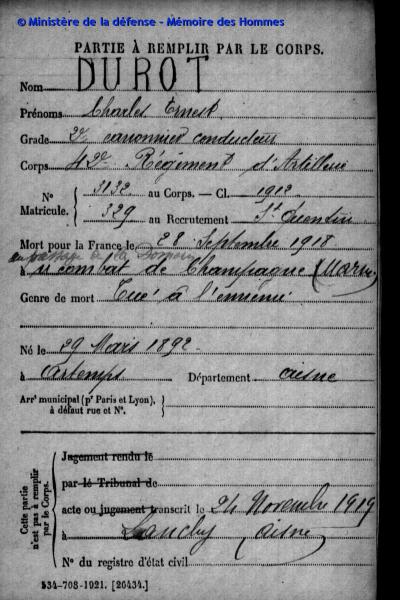 © Ministère de la défense - Mémoire des Hommes
PARTIE À REMPLIR PAR LE CORPS.
Nom DUROT
Prénoms Charles Ernest
Grade 2e canonnier conducteur
Corps 42e Régiment d'Artillerie
N° Matricule. 3132 au Corps. — Cl. 1912
329 au Recrutement St Quentin
Mort pour la France le 28 Septembre 1918
à la
à combat de Champagne (Marne)
Genre de mort Tué à l'ennemi
Né le 29 Mars 1892
à Artemps Département Aisne
Arrt municipal (pr Paris et Lyon), à défaut rue et N°.
Cette partie n'est pas à remplir par le Corps.
Jugement rendu le
par le Tribunal de
acte ou jugement transcrit le 24 Novembre 1919
à Aisne
N° du registre d'état civil
534-708-1921. [26434.]